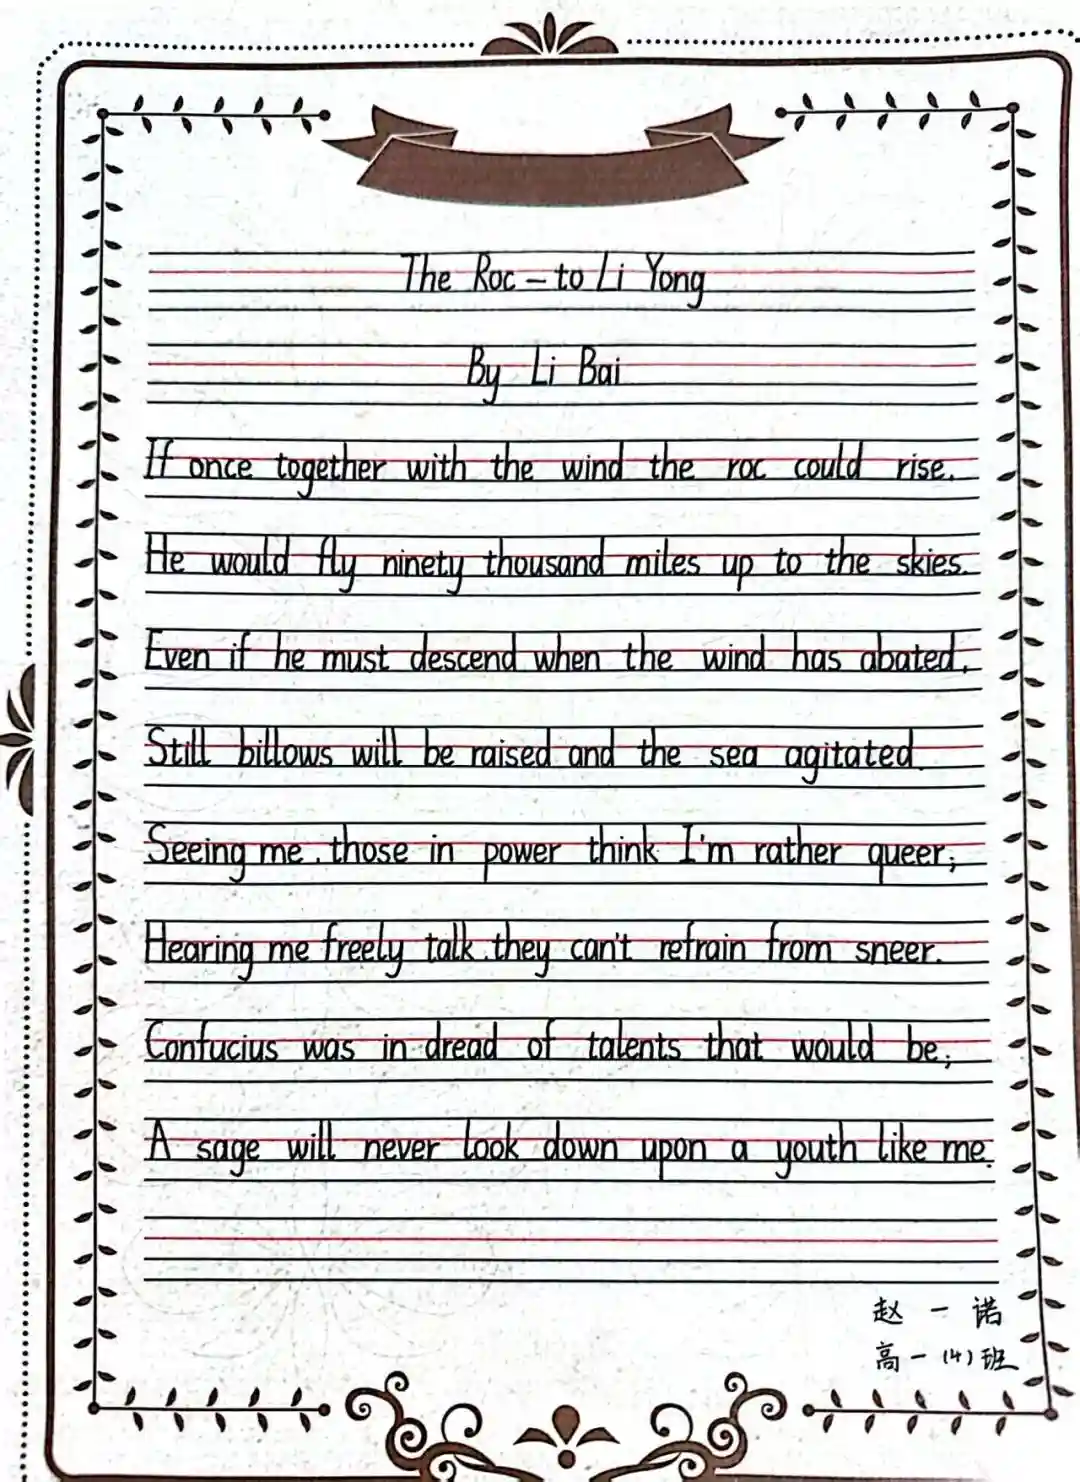 The Roc – to Li Yong
By Li Bai
If once together with the wind the roc could rise.
He would fly ninety thousand miles up to the skies.
Even if he must descend when the wind has abated,
Still billows will be raised and the sea agitated.
Seeing me, those in power think I'm rather queer;
Hearing me freely talk, they can't refrain from sneer.
Confucius was in dread of talents that would be;
A sage will never look down upon a youth like me.
赵一诺
高一(4)班